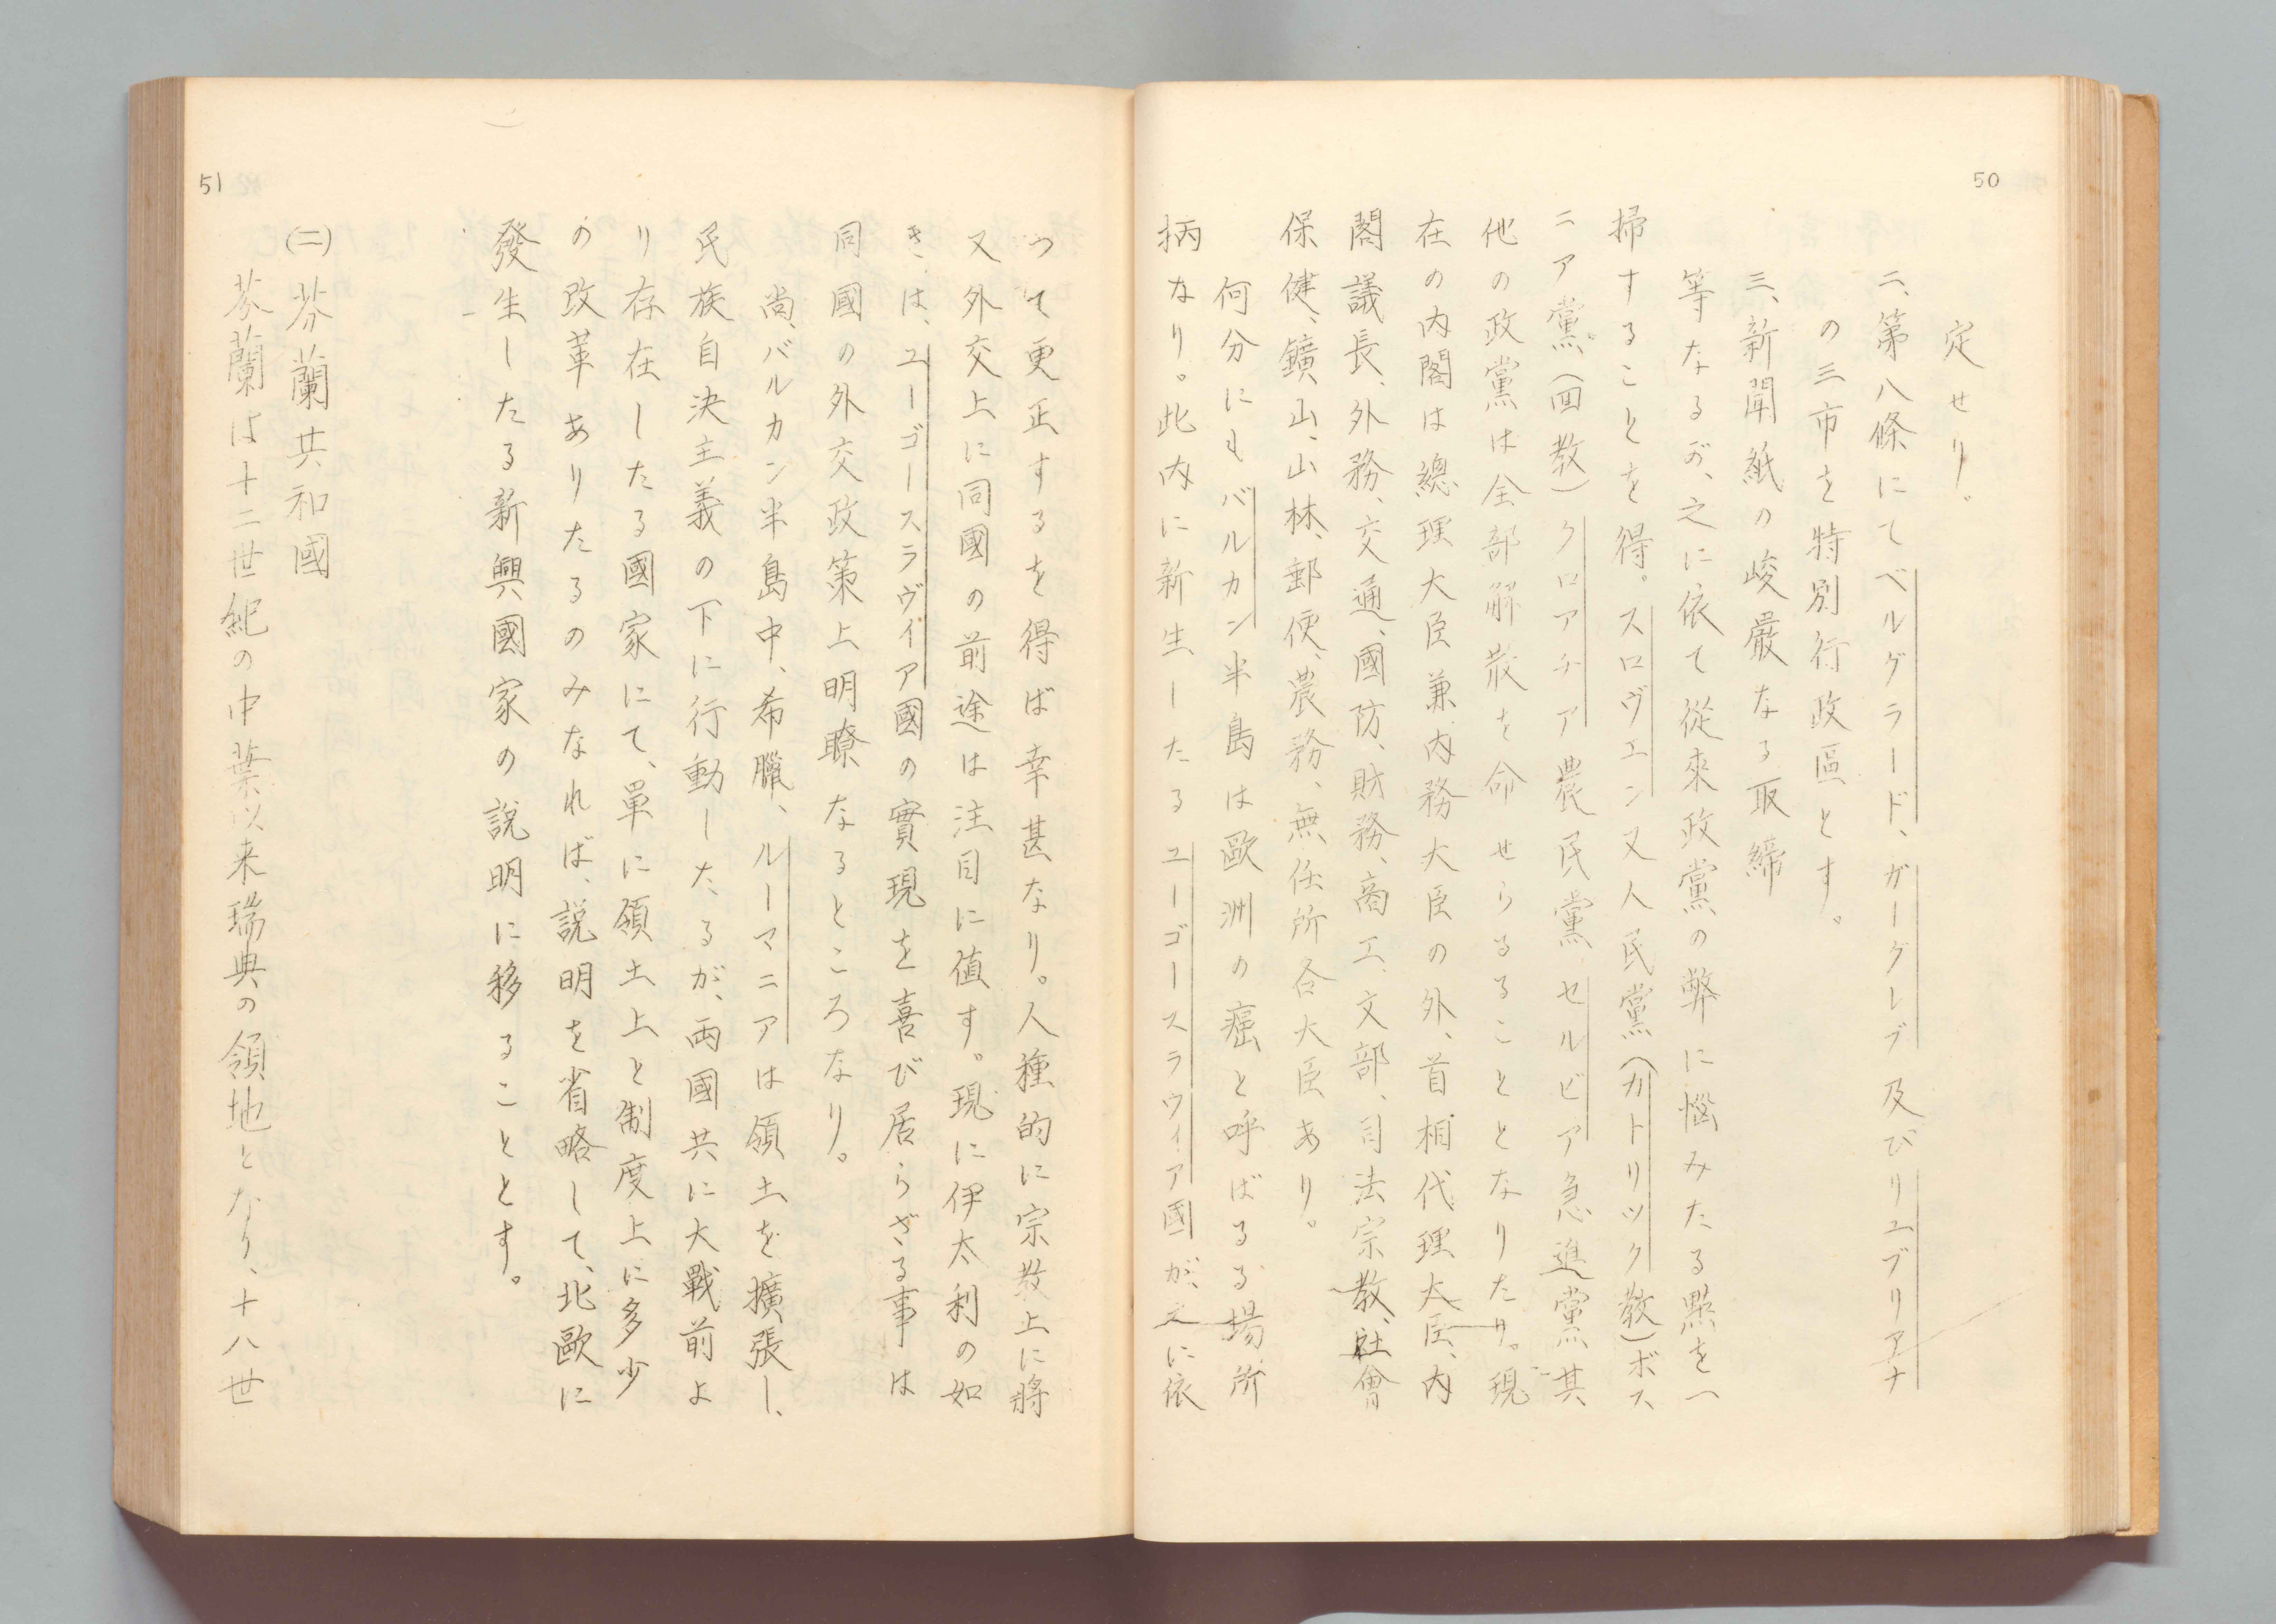 50
定せり。
二、第八條にてベルグラード、ガーグレブ及びリユブリアナ
の三市を特別行政區とす。
三、新聞紙の峻嚴なる取締
等なるが、之に依て從來政黨の弊に惱みたる點を一
掃することを得。スロヴエン又人民黨(カトリック教)ボス
ニア黨(回教)クロアチア農民黨、セルビア急進黨、其
他の政黨は全部解散を命せらるることとなりたり。現
在の内閣は總理大臣兼内務大臣の外、首相代理大臣、内
閣議長、外務、交通、國防、財務、商工、文部、司法宗教、社會
保健、鑛山、山林、郵便、農務、無任所各大臣あり。
何分にもバルカン半島は歐洲の癌と呼ばるる場所
柄なり。此内に新生したるユーゴースラウィア國が、之に依
つて更正するを得ば幸甚なり。人種的に宗教上に將
又外交上に同國の前途は注目に値す。現に伊太利の如
きは、ユーゴースラヴィア國の實現を喜び居らざる事は
同國の外交政策上明瞭なるところなり。
尚、バルカン半島中、希臘、ルーマニアは領土を擴張し、
民族自決主義の下に行動したるが、両國共に大戰前よ
り存在したる國家にて、單に領土上と制度上に多少
の改革ありたるのみなれば、説明を省略して、北歐に
發生したる新興國家の説明に移ることとす。
51
(二)芬蘭共和國
芬蘭は十二世紀の中葉以来瑞典の領地となり、十八世